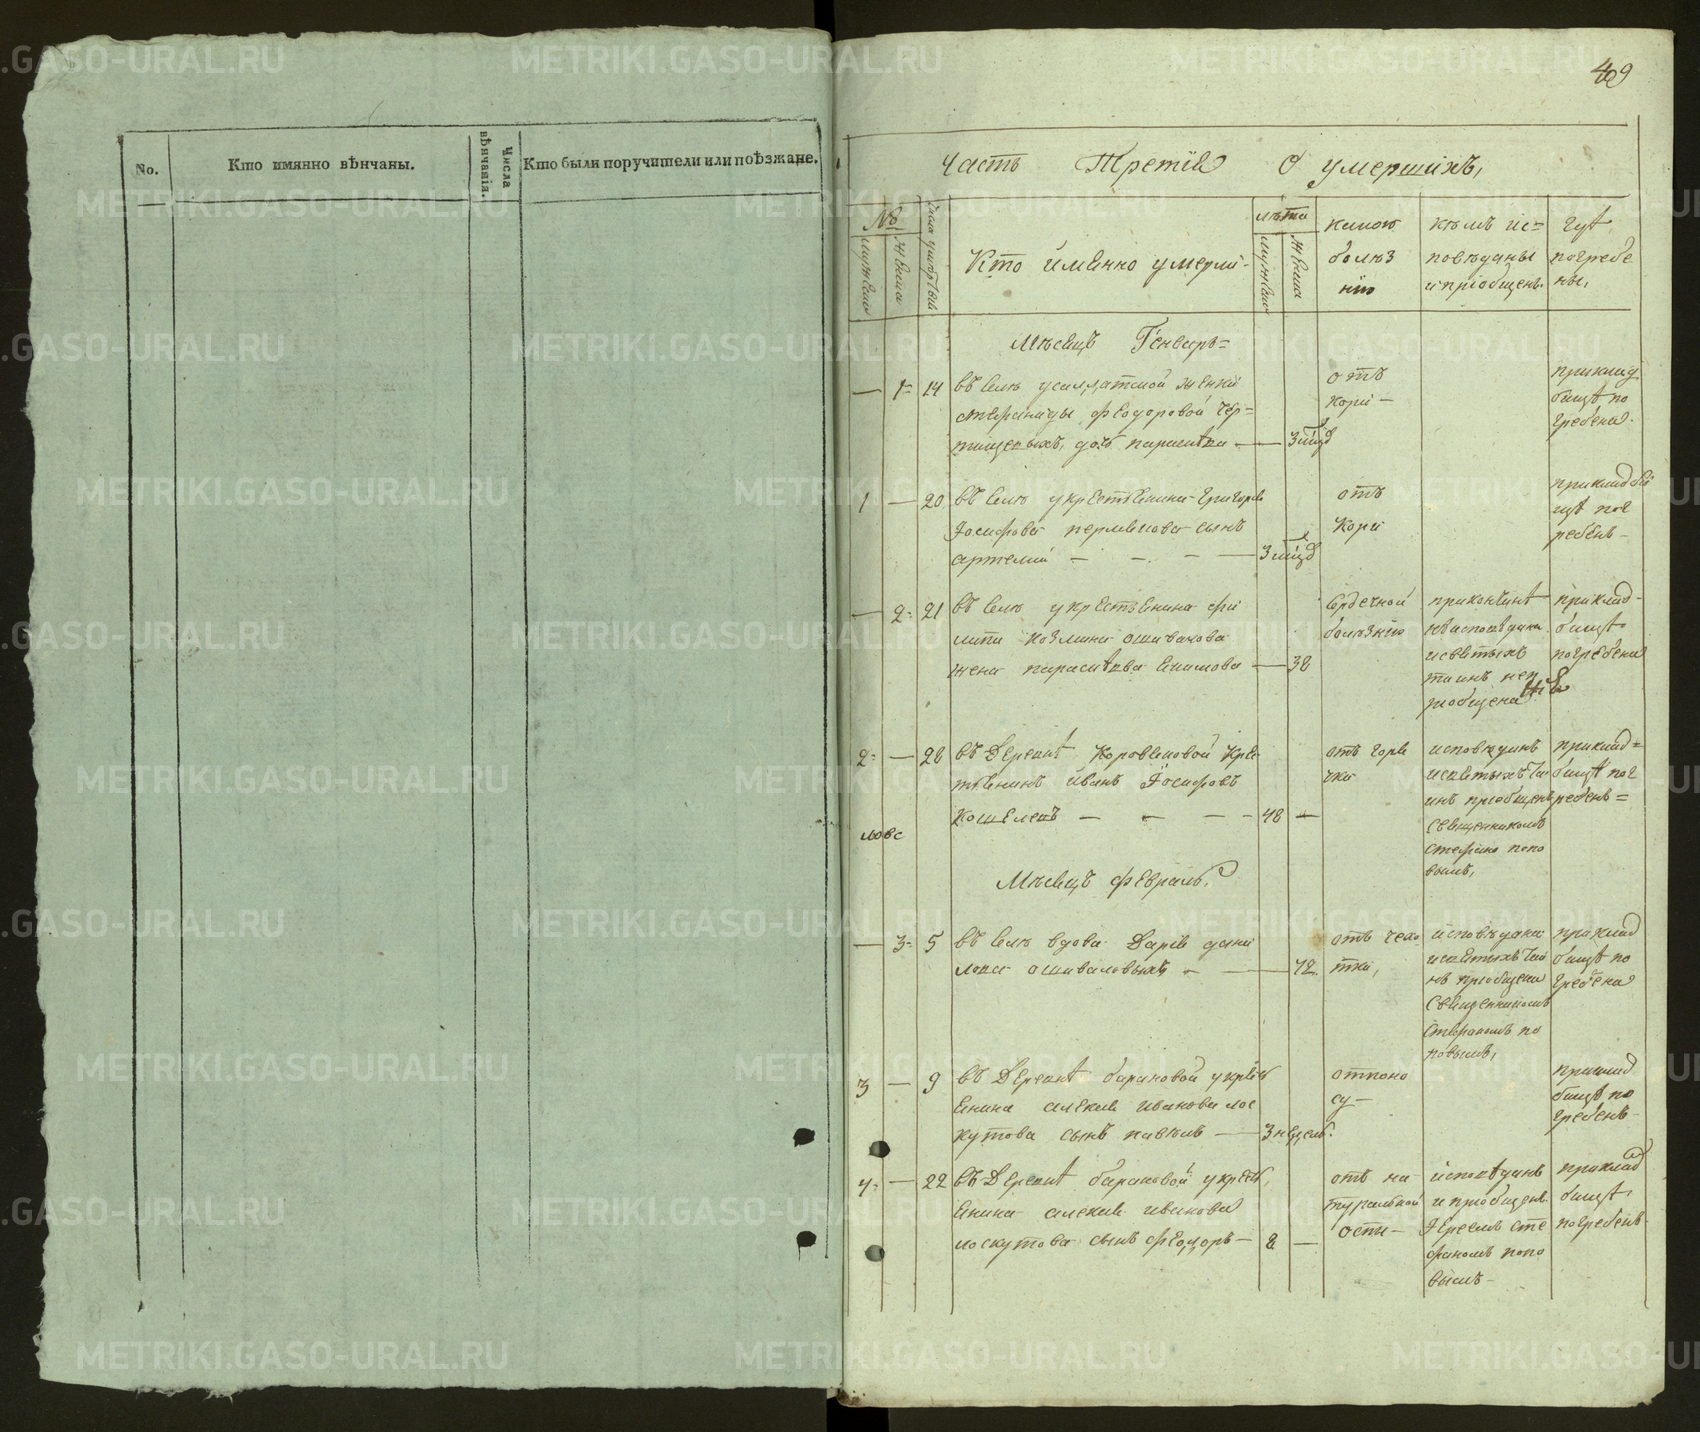 No.
Кто имянно вѣнчаны.
Числа вѣнчанія.
Кто были поручители или поѣзжане.
409
Часть Третія О умершихъ,
№
мужеска
женска
Числа умертвія
Кто имянно умерли
лѣта
мужеска
женска
какою болѣзнію
кѣмъ исповѣданы и пріобщены
гдѣ погребены,
Мѣсяцъ Генварь
— 1 14 въ селѣ у солдатской женки
Стефаниды Феодоровой
дочь Параскева — 3 мѣсяц
отъ кори
приклад
бищѣ по
гребена
1 — 20 въ селѣ у крестьянина Григорья
Іосифова сынъ
Артемій — — — 3 мѣсяц
отъ
кори
приклад би
щѣ пог
ребенъ
— 2 21 въ селѣ у крестьянина Фи
липа Козмина Ошивалова
жена Параскева Екимова — 38
сердечной
болѣзнію
не исповѣдана
и святыхъ
таинъ неп
ріобщена
приклад
бищѣ
погребена
2 — 28 въ Деревнѣ Коровяковой Крес
тьянинъ Иванъ Іосифовъ
Кошелевъ — — — 48 —
отъ горя
чки
исповѣданъ
и святыхъ та
инъ пріобщенъ
священникомъ
Стефано Попо
вымъ,
приклад
бищѣ пог
ребенъ
Мѣсяцъ Февраль
— 3 5 въ селѣ вдова Дарія Дани
лова Ошиваловыхъ — 72
отъ чахо
тки,
исповѣдана
и святыхъ таи
нъ пріобщена
священникомъ
Стефаномъ По
повымъ,
приклад
бищѣ по
гребена
3 — 9 въ Деревнѣ Барановой у крест
янина Алексія Иванова Лос
кутова сынъ Павелъ — 3 недель
отпоно
су
приклад
бищѣ по
гребенъ
4 — 22 въ Деревнѣ Барановой у крест
янина Алексія Иванова
Лоскутова сынъ Феодоръ — 8 —
отъ на
туральной
оспы
исповѣданъ
и пріобщенъ
Іереемъ Сте
фаномъ Попо
вымъ
приклад
бищѣ
погребенъ
METRIKI.GASO-URAL.RU